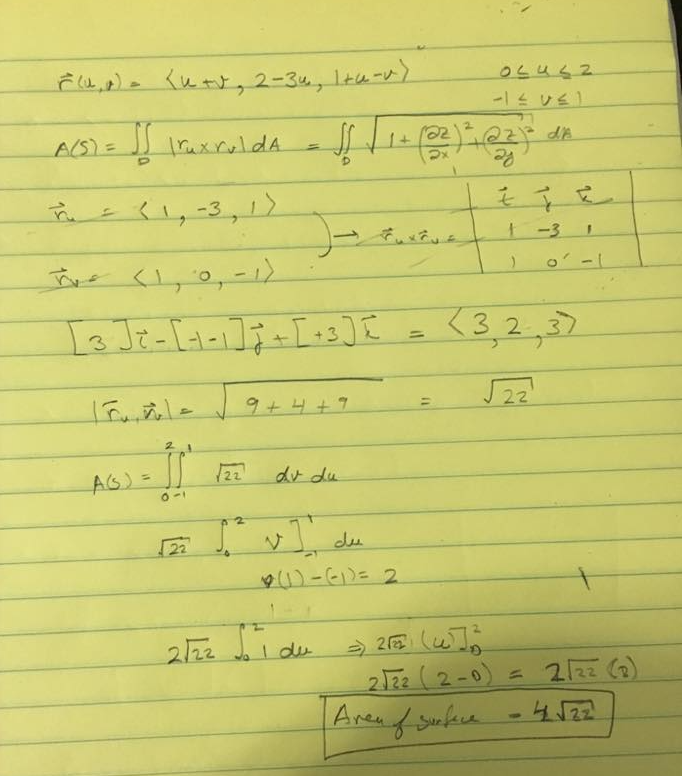 r⃗(u,v) = ⟨u+v, 2-3u, 1+u-v⟩ 0≤u≤2
-1≤v≤1
A(S) = ∬_D |r_u×r_v| dA = ∬_D √(1+(∂z/∂x)²+(∂z/∂y)²) dA
r⃗_u = ⟨1, -3, 1⟩
r⃗_v = ⟨1, 0, -1⟩
→ r⃗_u×r⃗_v = | i⃗ j⃗ k⃗
1 -3 1
1 0 -1 |
[3]i⃗-[-1-1]j⃗+[+3]k⃗ = ⟨3, 2, 3⟩
|r⃗_u, r⃗_v| = √(9+4+9) = √22
A(S) = ∫_0^2 ∫_-1^1 √22 dv du
√22 ∫_0^2 v]_-1^1 du
(1)-(-1)= 2
2√22 ∫_0^2 1 du ⇒ 2√22 (u)]_0^2
2√22 (2-0) = 2√22 (2)
Area of surface = 4√22